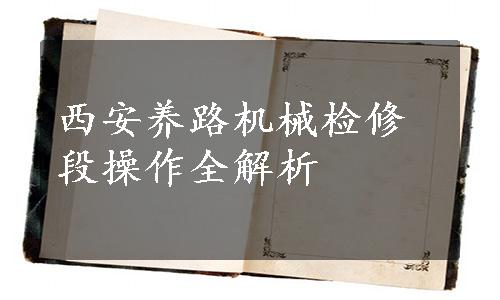 西安养路机械检修
段操作全解析